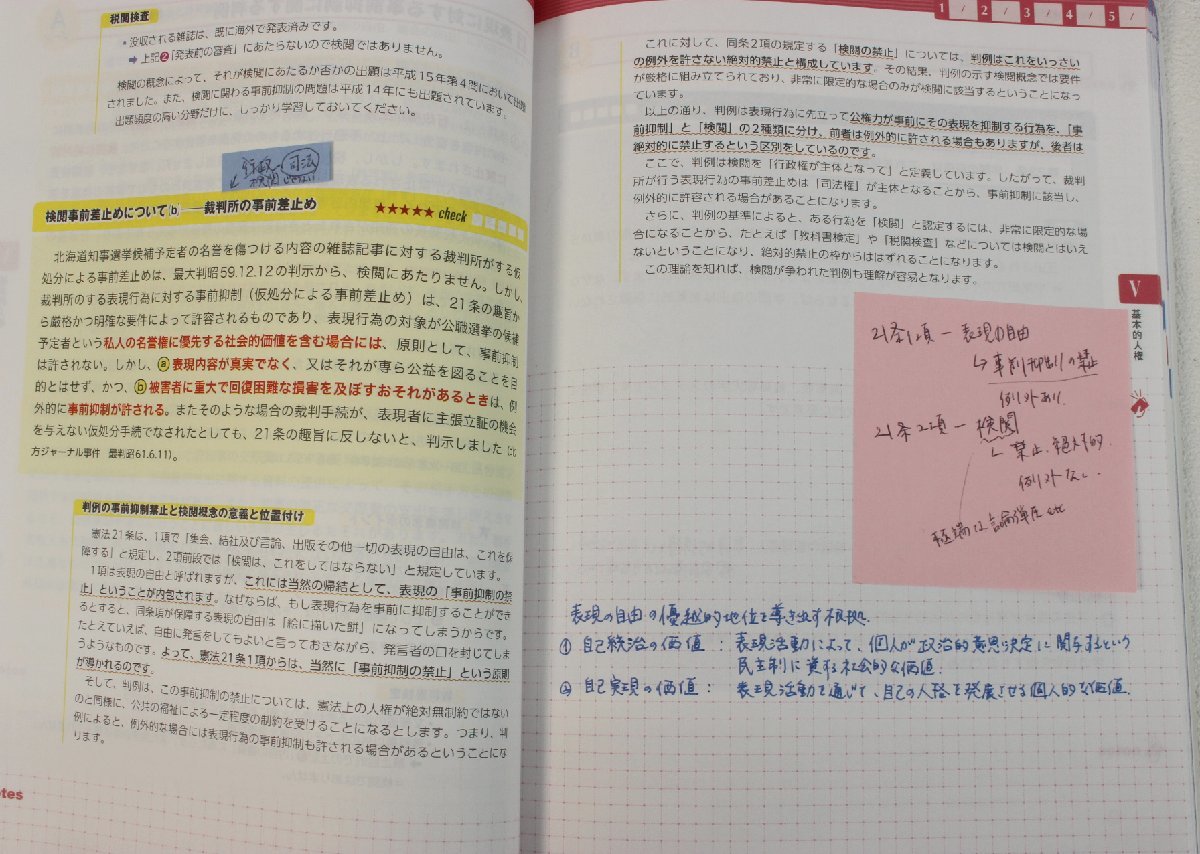 税関検査
・没収される雑誌は、既に海外で発表済みです。
➡ 上記❷「発表前の審査」にあたらないので検閲ではありません。
検閲の概念によって、それが検閲にあたるか否かの出題は平成15年第4問において出題
されました。また、検閲に関わる事前抑制の問題は平成14年にも出題されています。
出題頻度の高い分野だけに、しっかり学習しておいてください。
行政 - 司法
検閲
検閲事前差止めについてⓑ ──裁判所の事前差止め ★★★★★ check
北海道知事選挙候補予定者の名誉を傷つける内容の雑誌記事に対する裁判所がする仮
処分による事前差止めは、最大判昭59.12.12の判示から、検閲にあたりません。しかし、
裁判所のする表現行為に対する事前抑制（仮処分による事前差止め）は、21条の趣旨か
ら厳格かつ明確な要件によって許容されるものであり、表現行為の対象が公職選挙の候補
予定者という私人の名誉権に優先する社会的価値を含む場合には、原則として、事前抑制
は許されない。しかし、ⓐ表現内容が真実でなく、又はそれが専ら公益を図ることを目
的とはせず、かつ、ⓑ被害者に重大で回復困難な損害を及ぼすおそれがあるときは、例
外的に事前抑制が許される。またそのような場合の裁判手続が、表現者に主張立証の機会
を与えない仮処分手続でなされたとしても、21条の趣旨に反しないと、判示しました（北
方ジャーナル事件 最判昭61.6.11）。
判例の事前抑制禁止と検閲概念の意義と位置付け
憲法21条は、1項で「集会、結社及び言論、出版その他一切の表現の自由は、これを保
障する」と規定し、2項前段では「検閲は、これをしてはならない」と規定しています。
1項は表現の自由と呼ばれますが、これには当然の帰結として、表現の「事前抑制の禁
止」ということが内包されます。なぜならば、もし表現行為を事前に抑制することができ
るとすると、同条項が保障する表現の自由は「絵に描いた餅」になってしまうからです。
たとえていえば、自由に発言をしてもよいと言っておきながら、発言者の口を封じてしま
うようなものです。よって、憲法21条1項からは、当然に「事前抑制の禁止」という原則
が導かれるのです。
そして、判例は、この事前抑制の禁止については、憲法上の人権が絶対無制約ではない
のと同様に、公共の福祉による一定程度の制約を受けることになるとします。つまり、判
例によると、例外的な場合には表現行為の事前抑制も許される場合があるということにな
ります。
otes
1 / 2 / 3 / 4 / 5 /
これに対して、同条2項の規定する「検閲の禁止」については、判例はこれをいっさい
の例外を許さない絶対的禁止と構成しています。その結果、判例の示す検閲概念では要件
が厳格に組み立てられており、非常に限定的な場合のみが検閲に該当するということになっ
ています。
以上の通り、判例は表現行為に先立って公権力が事前にその表現を抑制する行為を、「事
前抑制」と「検閲」の2種類に分け、前者は例外的に許される場合もありますが、後者は
絶対的に禁止するという区別をしているのです。
ここで、判例は検閲を「行政権が主体となって」と定義しています。したがって、裁判
所が行う表現行為の事前差止めは「司法権」が主体となることから、事前抑制に該当し、
例外的に許容される場合があることになります。
さらに、判例の基準によると、ある行為を「検閲」と認定するには、非常に限定的な場
合になることから、たとえば「教科書検定」や「税関検査」などについては検閲とはいえ
ないということになり、絶対的禁止の枠からははずれることになります。
この理論を知れば、検閲が争われた判例も理解が容易となります。
V
基本的人権
21条1項 ー 表現の自由
↳ 事前抑制の禁止
例外あり.
21条2項 ー 検閲
↳ 禁止. 絶対的.
例外なし.
極端な言論弾圧 etc
表現の自由の優越的地位を導き出す根拠.
① 自己統治の価値 : 表現活動によって、個人が政治的意思決定に関与するという
民主制に資する社会的な価値.
② 自己実現の価値 : 表現活動を通じて、自己の人格を発展させる個人的な価値.